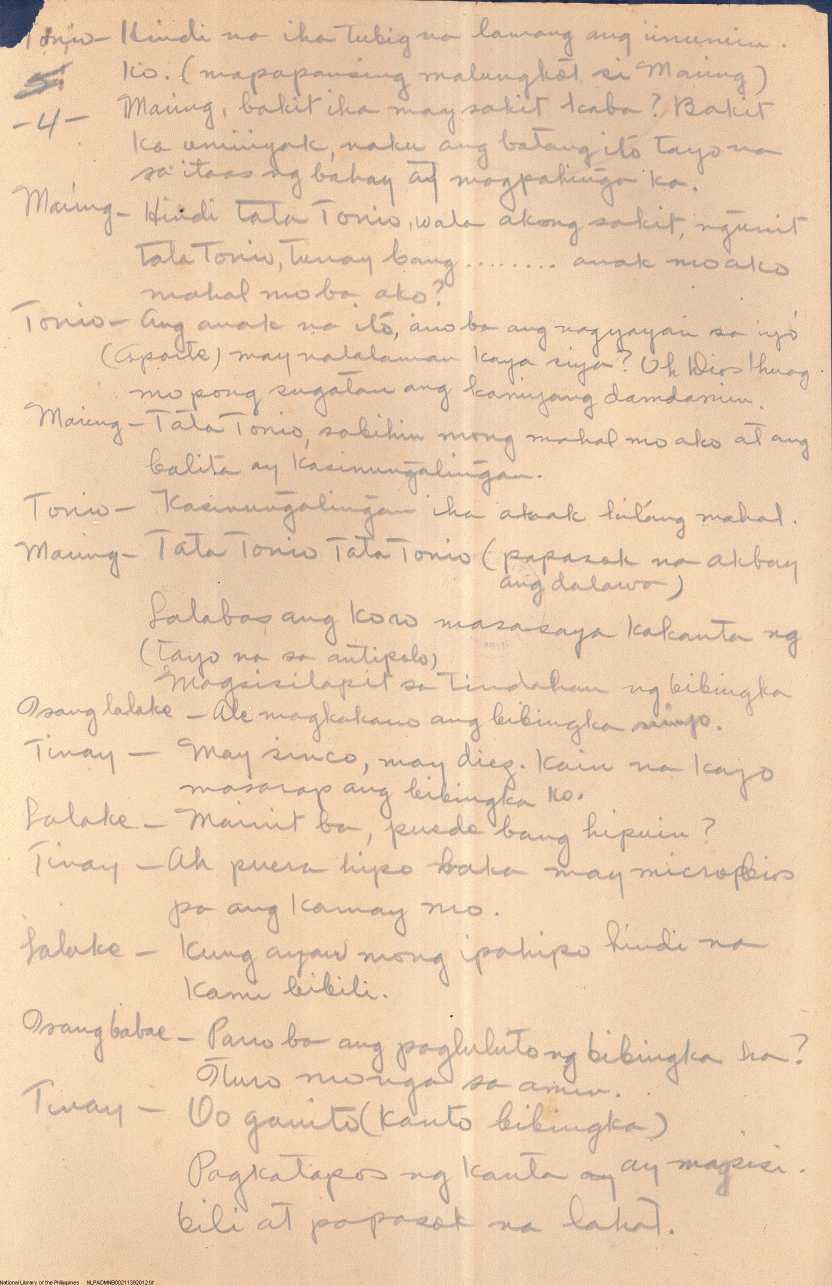 Tonio- Hindi na iha tubig na lamang ang iinumin
ko. (mapapansing malungkot si Maring)
5.
-4- Maring, bakit iha may sakit kaba? Bakit
ka umiiyak, naku ang batang ito tayo na
sa itaas ng bahay at magpahinga ka.
Maring- Hindi Tata Tonio, wala akong sakit, ngunit
tata Tonio, tunay bang ........ anak mo ako
mahal mo ba ako?
Tonio- Ang anak na ito, ano ba ang nagyayari sa iyo
(Aparte) may nalalaman kaya siya? Oh Dios! huag
mo pong sugatan ang kaniyang damdamin.
Maring- Tata Tonio, sabihin mong mahal mo ako at ang
balita ay kasinungalingan.
Tonio- Kasinungalingan iha anak kitang mahal.
Maring- Tata Tonio Tata Tonio (papasok na akbay
ang dalawa)
Lalabas ang Koro masasaya kakanta ng
(tayo na sa antipolo)
Magsisilapit sa Tindahan ng bibingka
Isang lalake - Ale magkakano ang bibingka ninyo.
Tinay - May sinco, may diez. Kain na kayo
masarap ang bibingka ko.
Lalake - Mainit ba, puede bang hipuin?
Tinay - Ah puera hipo baka may microbios
pa ang kamay mo.
Lalake - Kung ayaw mong ipahipo hindi na
kami bibili.
Isang babae - Pano ba ang pagluluto ng bibingka ha?
Ituro mo nga sa amin.
Tinay - Oo ganito (Kanto bibingka)
Pagkatapos ng kanta ay ay magsisi-
bili at papasok na lahat.
National Library of the Philippines NLPADMNB00211392012.tif